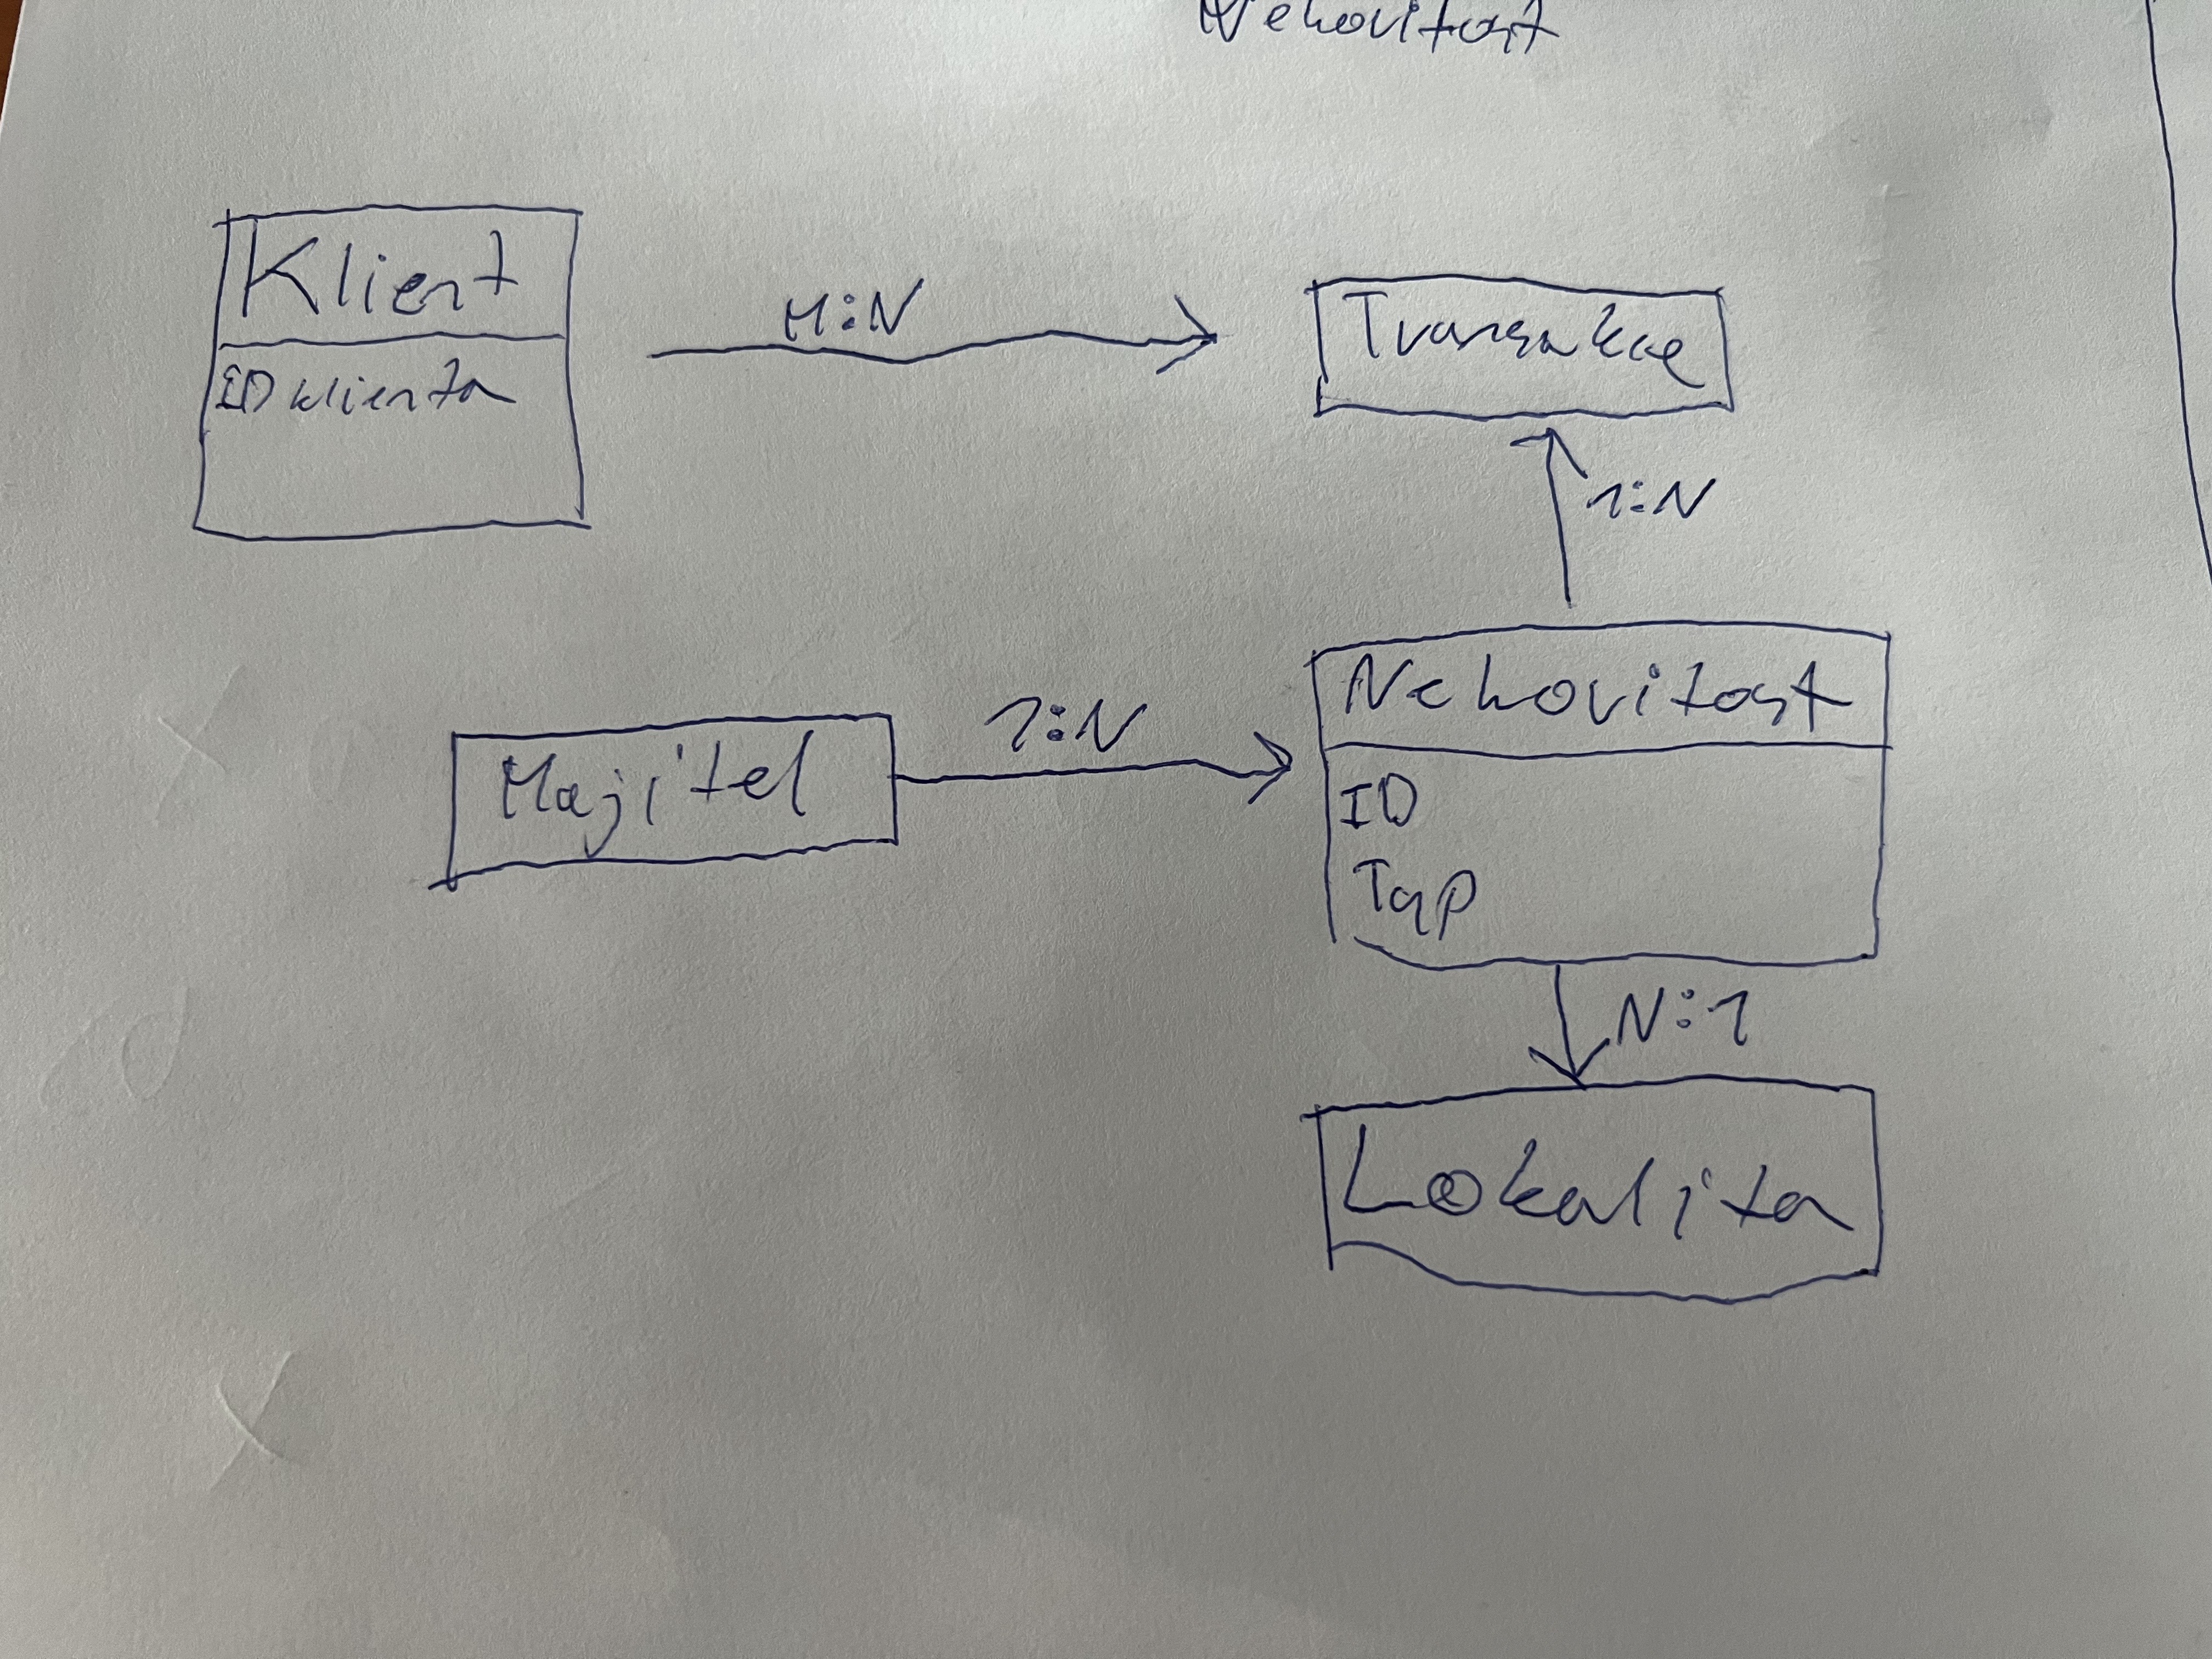 Nehovitost
Klient
ID klienta
M:N
Transakce
1:N
Majitel
1:N
Nehovitost
ID
Typ
N:1
Lokalita